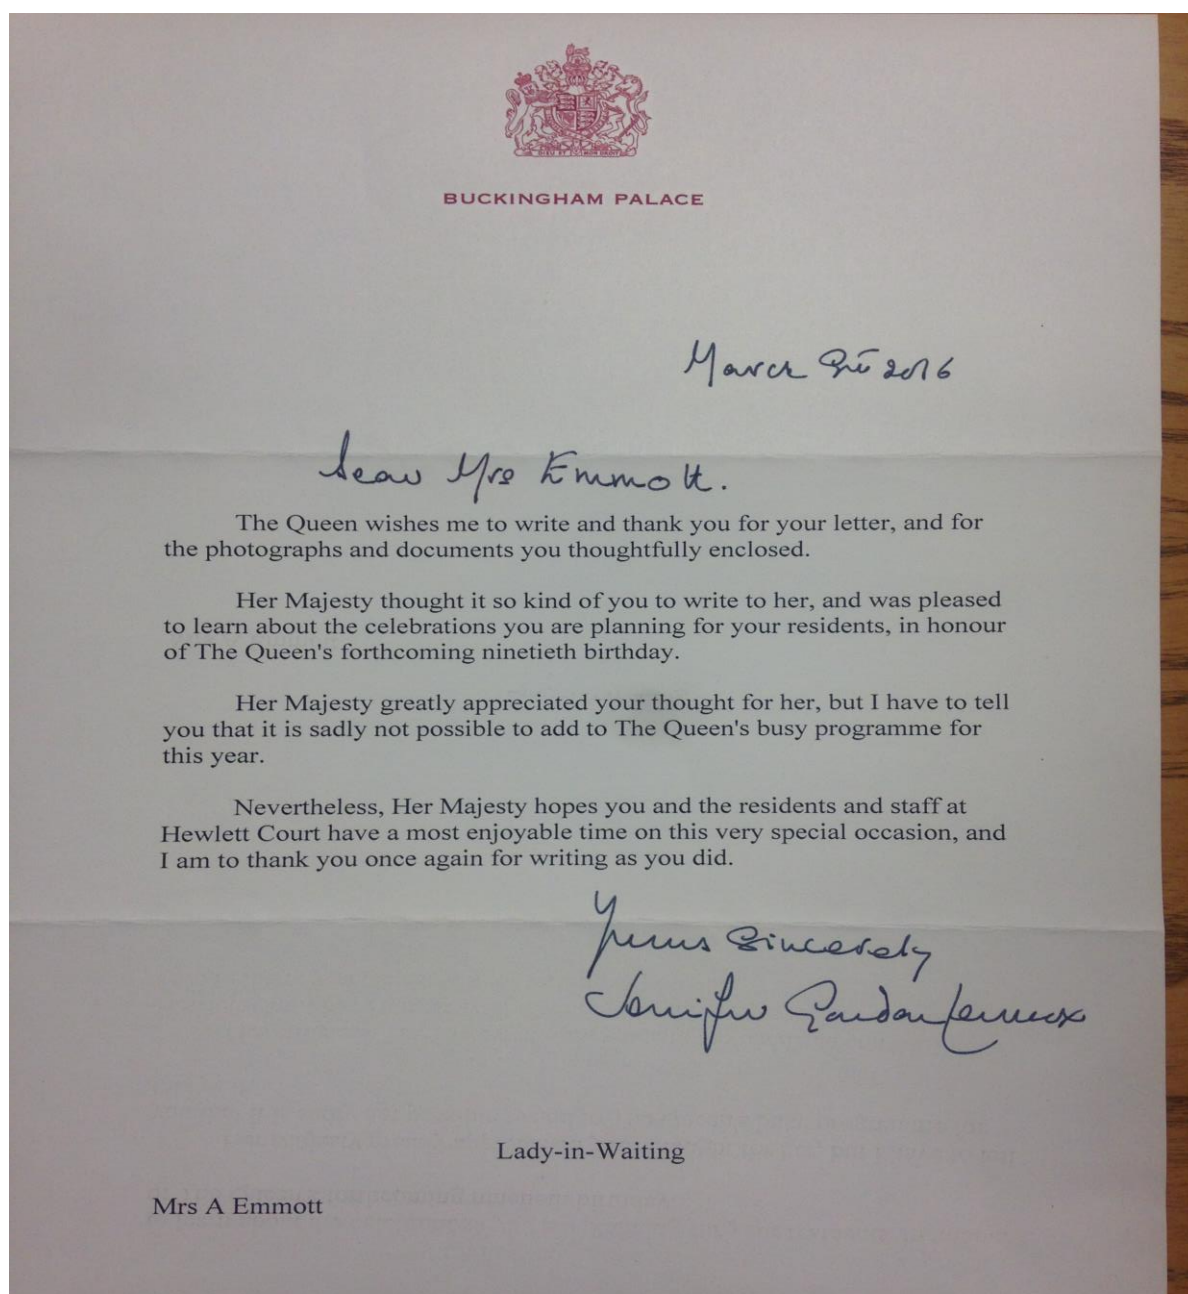 BUCKINGHAM PALACE
March 2016
Dear Mrs Emmott.
The Queen wishes me to write and thank you for your letter, and for
the photographs and documents you thoughtfully enclosed.
Her Majesty thought it so kind of you to write to her, and was pleased
to learn about the celebrations you are planning for your residents, in honour
of The Queen's forthcoming ninetieth birthday.
Her Majesty greatly appreciated your thought for her, but I have to tell
you that it is sadly not possible to add to The Queen's busy programme for
this year.
Nevertheless, Her Majesty hopes you and the residents and staff at
Hewlett Court have a most enjoyable time on this very special occasion, and
I am to thank you once again for writing as you did.
Yours Sincerely
Jennifer Gordon Lennox
Lady-in-Waiting
Mrs A Emmott